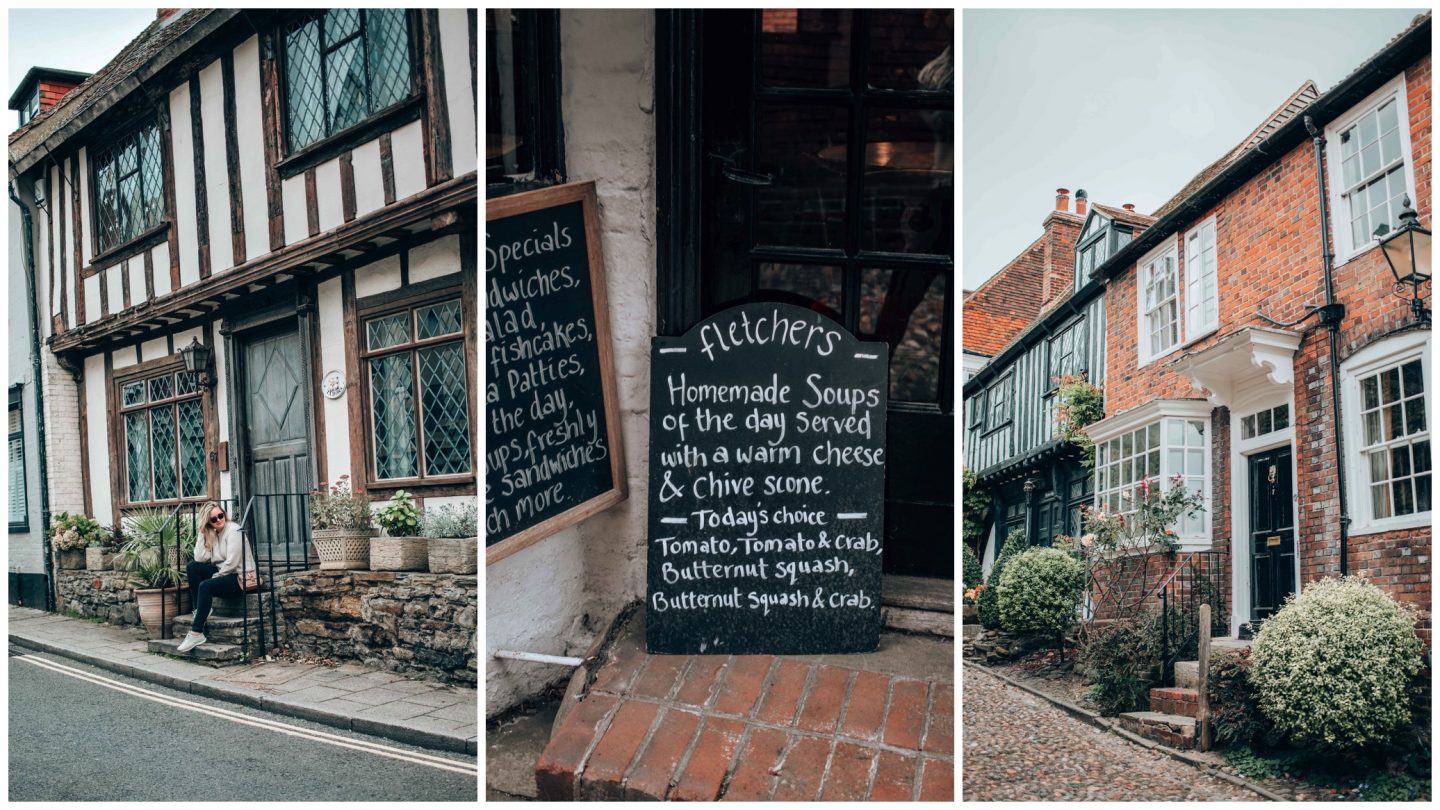 Specials
dwiches,
alad,
fishcakes,
a Patties,
the day,
ups, freshly
e Sandwiches
ch more.
fletchers
Homemade Soups
of the day served
with a warm cheese
& chive scone.
Today's choice
Tomato, Tomato & Crab,
Butternut squash,
Butternut Squash & Crab.